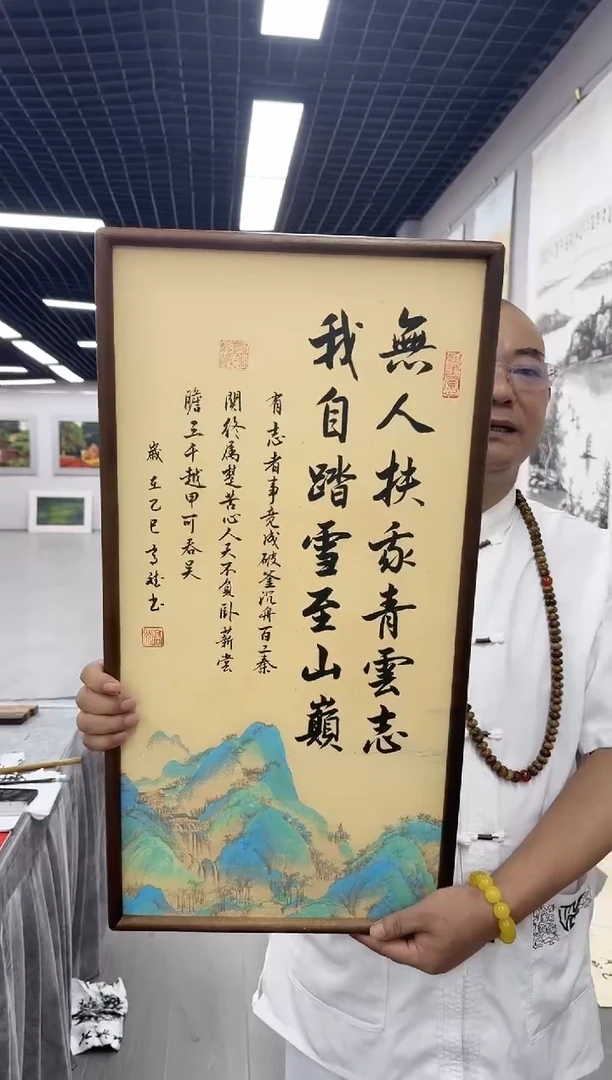 無人扶我青雲志
我自踏雪至山巔
有志者事竟成破釜沉舟百二秦
關終屬楚苦心人天不負卧薪嘗
膽三千越甲可吞吴
嵗在乙巳
书